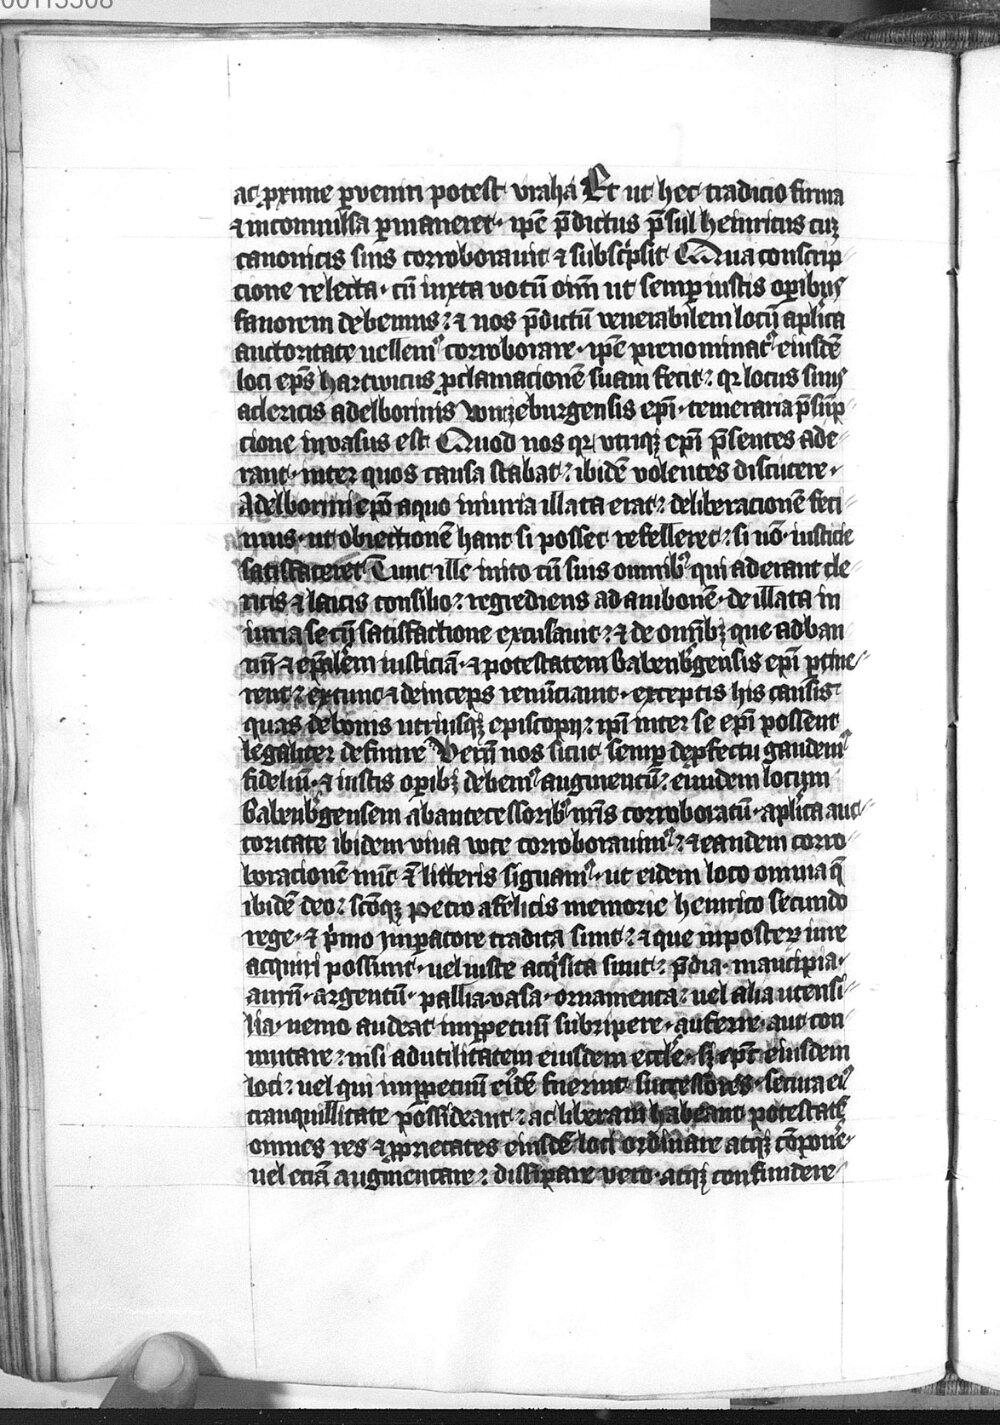 00113508
ac pxime pueniri potest vraha Et ut hec tradicio firma
⁊ inconuulsa pmaneret· ipe p̄dictus p̄sul heinricus cuʒ
canonicis suis corroborauit ⁊ subscⁱpsit Qua conscrip
cione relecta· cū iuxta votū oīm ut semp iustis opibus
fauorem debemus: ⁊ nos p̄dictū venerabilem locū aplica
auctoritate uellemꝰ corroborare· ipe prenominatꝰ eiusdē
loci eps hartwicus pclamacionē suam fecit: qr locus suus
a clericis adelboronis wirzeburgensis epi· temeraria p̄sūp
cione inuasus est Quod nos qr utriqʒ epi p̄sentes ade
rant· inter quos causa stabat: ibidē volentes discutere·
Adelboroni epo a quo iniuria illata erat: deliberacionē feci
mus· ut obiectionē hanc si posset refelleret: si nō· iusticie
satisfaceret Tunc ille inito cū suis omnibꝰ qui aderant cle
ricis ⁊ laicis consilio: regrediens ad ambonē· de illata in
iuria se cū satisfactione excusauit: ⁊ de omībʒ que ad ban
nū ⁊ epalem iusticiā· ⁊ potestatem babenbgensis epi ptine
rent: ex tunc ⁊ deinceps renūciauit· exceptis his causis
quas de bonis utriusqʒ episcopij: ipi inter se epi possent
legaliter definire Verū nos sicut semp de pfectu gaudemꝰ
fideliū· ⁊ iustis opibʒ debemꝰ augmentū: eundem locum
babenbgensem ab antecessoribꝰ nris corroboratū· aplica auc
toritate ibidem viua voce corroborauimꝰ: ⁊ eandem corro
boracionē nūc ī litteris signamꝰ· ut eidem loco omnia q̄
ibidē deo: scōqʒ petro a felicis memorie heinrico secundo
rege· ⁊ pⁱmo imperatore tradita sunt: ⁊ que in posterū iure
acquiri possunt· uel iuste acqⁱsita sunt: p̄dia· mancipia·
aurū· argentū· pallia· vasa· ornamenta: uel alia utensi
lia· nemo audeat in ppetuū subripere· auferre· aut con
mutare: nisi ad utilitatem eiusdem eccle· sʒ eps eiusdem
loci: uel qui in ppetuū eidē fuerint successores· secura eiꝰ
tranquillitate possideant: ac liberam habeant potestatē
omnes res ⁊ pprietates eiusdē loci ordinare atqʒ cōpone·
uel etiā augmentare: dissipare vero· atqʒ confundere